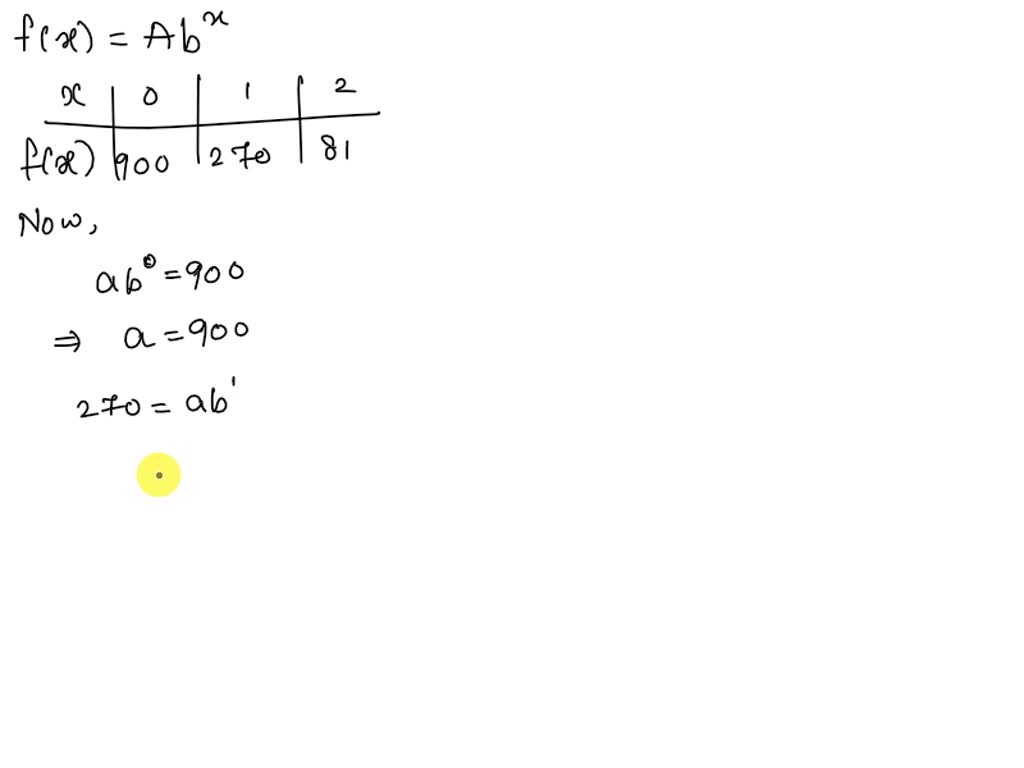 f(x) = Ab^x
x | 0 | 1 | 2
f(x) | 900 | 270 | 81
Now,
ab^0 = 900
⇒ a = 900
270 = ab^1